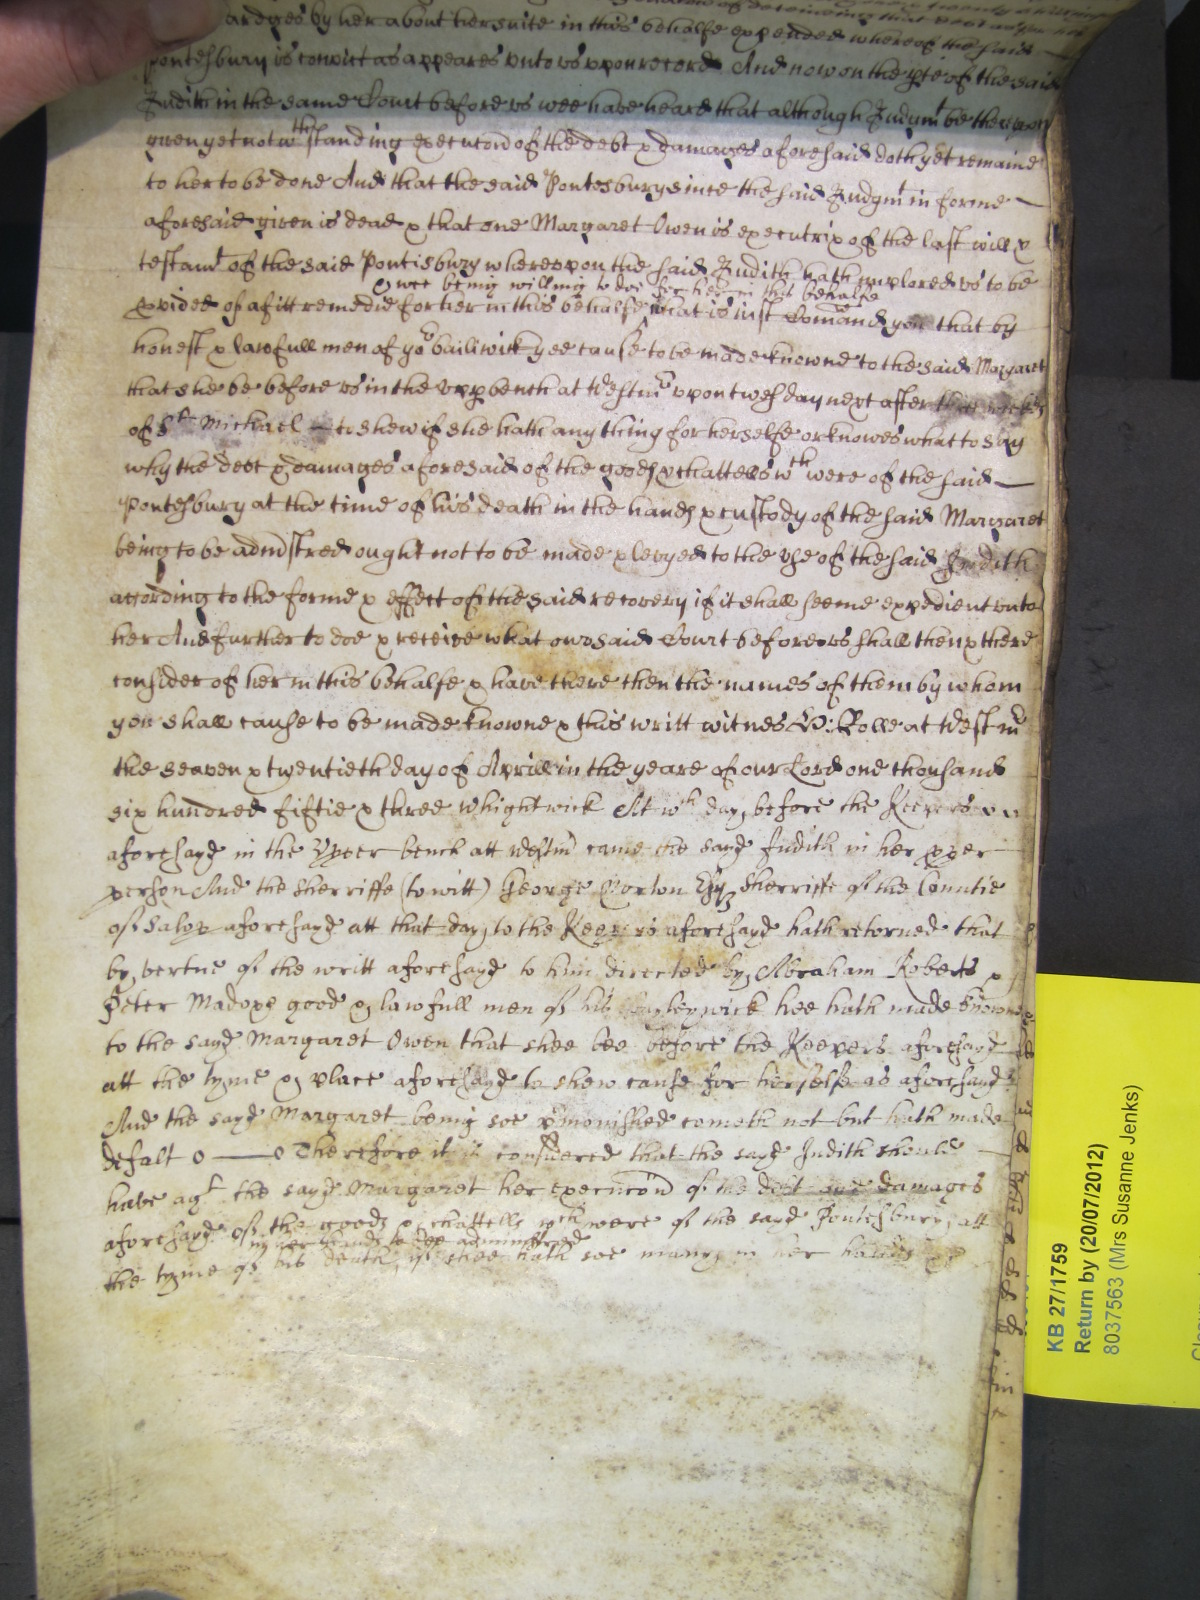 by her about her suite in this behalfe expended whereof the said
Pontesbury is convict as appeares unto us upon record And now on the pte of the said
Judith in the same Court before us wee have heard that although Judgmt be thereupon
given yet notwthstanding execucon of the debt & damages aforesaid doth yet remaine
to her to be done And that the said Pontesbury since the said Judgmt in forme
aforesaid given is dead & that one Margaret Owen is executrix of the last will &
testamt of the said Pontisbury whereupon the said Judith hath implored us to be
& wee being willing to doe for her in this behalfe
pvided of a fitt remedie for her in this behalfe what is iust Comand you that by
honest & lawfull men of yor bailiwick yee cause to be made knowne to the said Margaret
that she be before us in the upp bench at Westmr upon twesday next after three weekes
of St Michael to shew if she hath any thing for herselfe or knowes what to say
why the debt & damages aforesaid of the goods & chattells wth were of the said
Pontesbury at the time of his death in the hands & custody of the said Margaret
being to be admistred ought not to be made & levyed to the use of the said Judith
according to the forme & effect of the said recovery if it shall seeme expedient unto
her And further to doe & receive what our said Court before us shall then & there
consider of her in this behalfe & have there then the names of them by whom
you shall cause to be made knowne & this writt witnes Rolle at Westmr
the seaven & twentieth day of Aprill in the yeare of our Lord one thousand
six hundred fiftie & three Whightwick At wh day before the Keepers
aforesayd in the Upper bench att Westm came the sayd Judith in her pper
person And the sherriffe (to witt) George Norton Esqr Sherriffe of the Countie
of Salop aforesayd att that day to the Keepers aforesayd hath retorned that
by vertue of the writt aforesayd to him directed by Abraham Roberts &
Peter Madoxe good & lawfull men of his bayleywick hee hath made knowne
to the sayd Margaret Owen that shee bee before the Keepers aforesayd
att the tyme & place aforesayd to shew cause for herselfe as aforesayd
And the sayd Margaret being soe pmonished cometh not but hath made
defalt o———o Therefore it is considered that the sayd Judith should
have agt the sayd Margaret her execucon of the debt and damages
aforesayd of the goods & chattells wch were of the sayd Pontesbury att
in her hands to bee administred
the tyme of his death, if shee hath soe many in her hands
KB 27/1759
Return by (20/07/2012)
8037563 (Mrs Susanne Jenks)